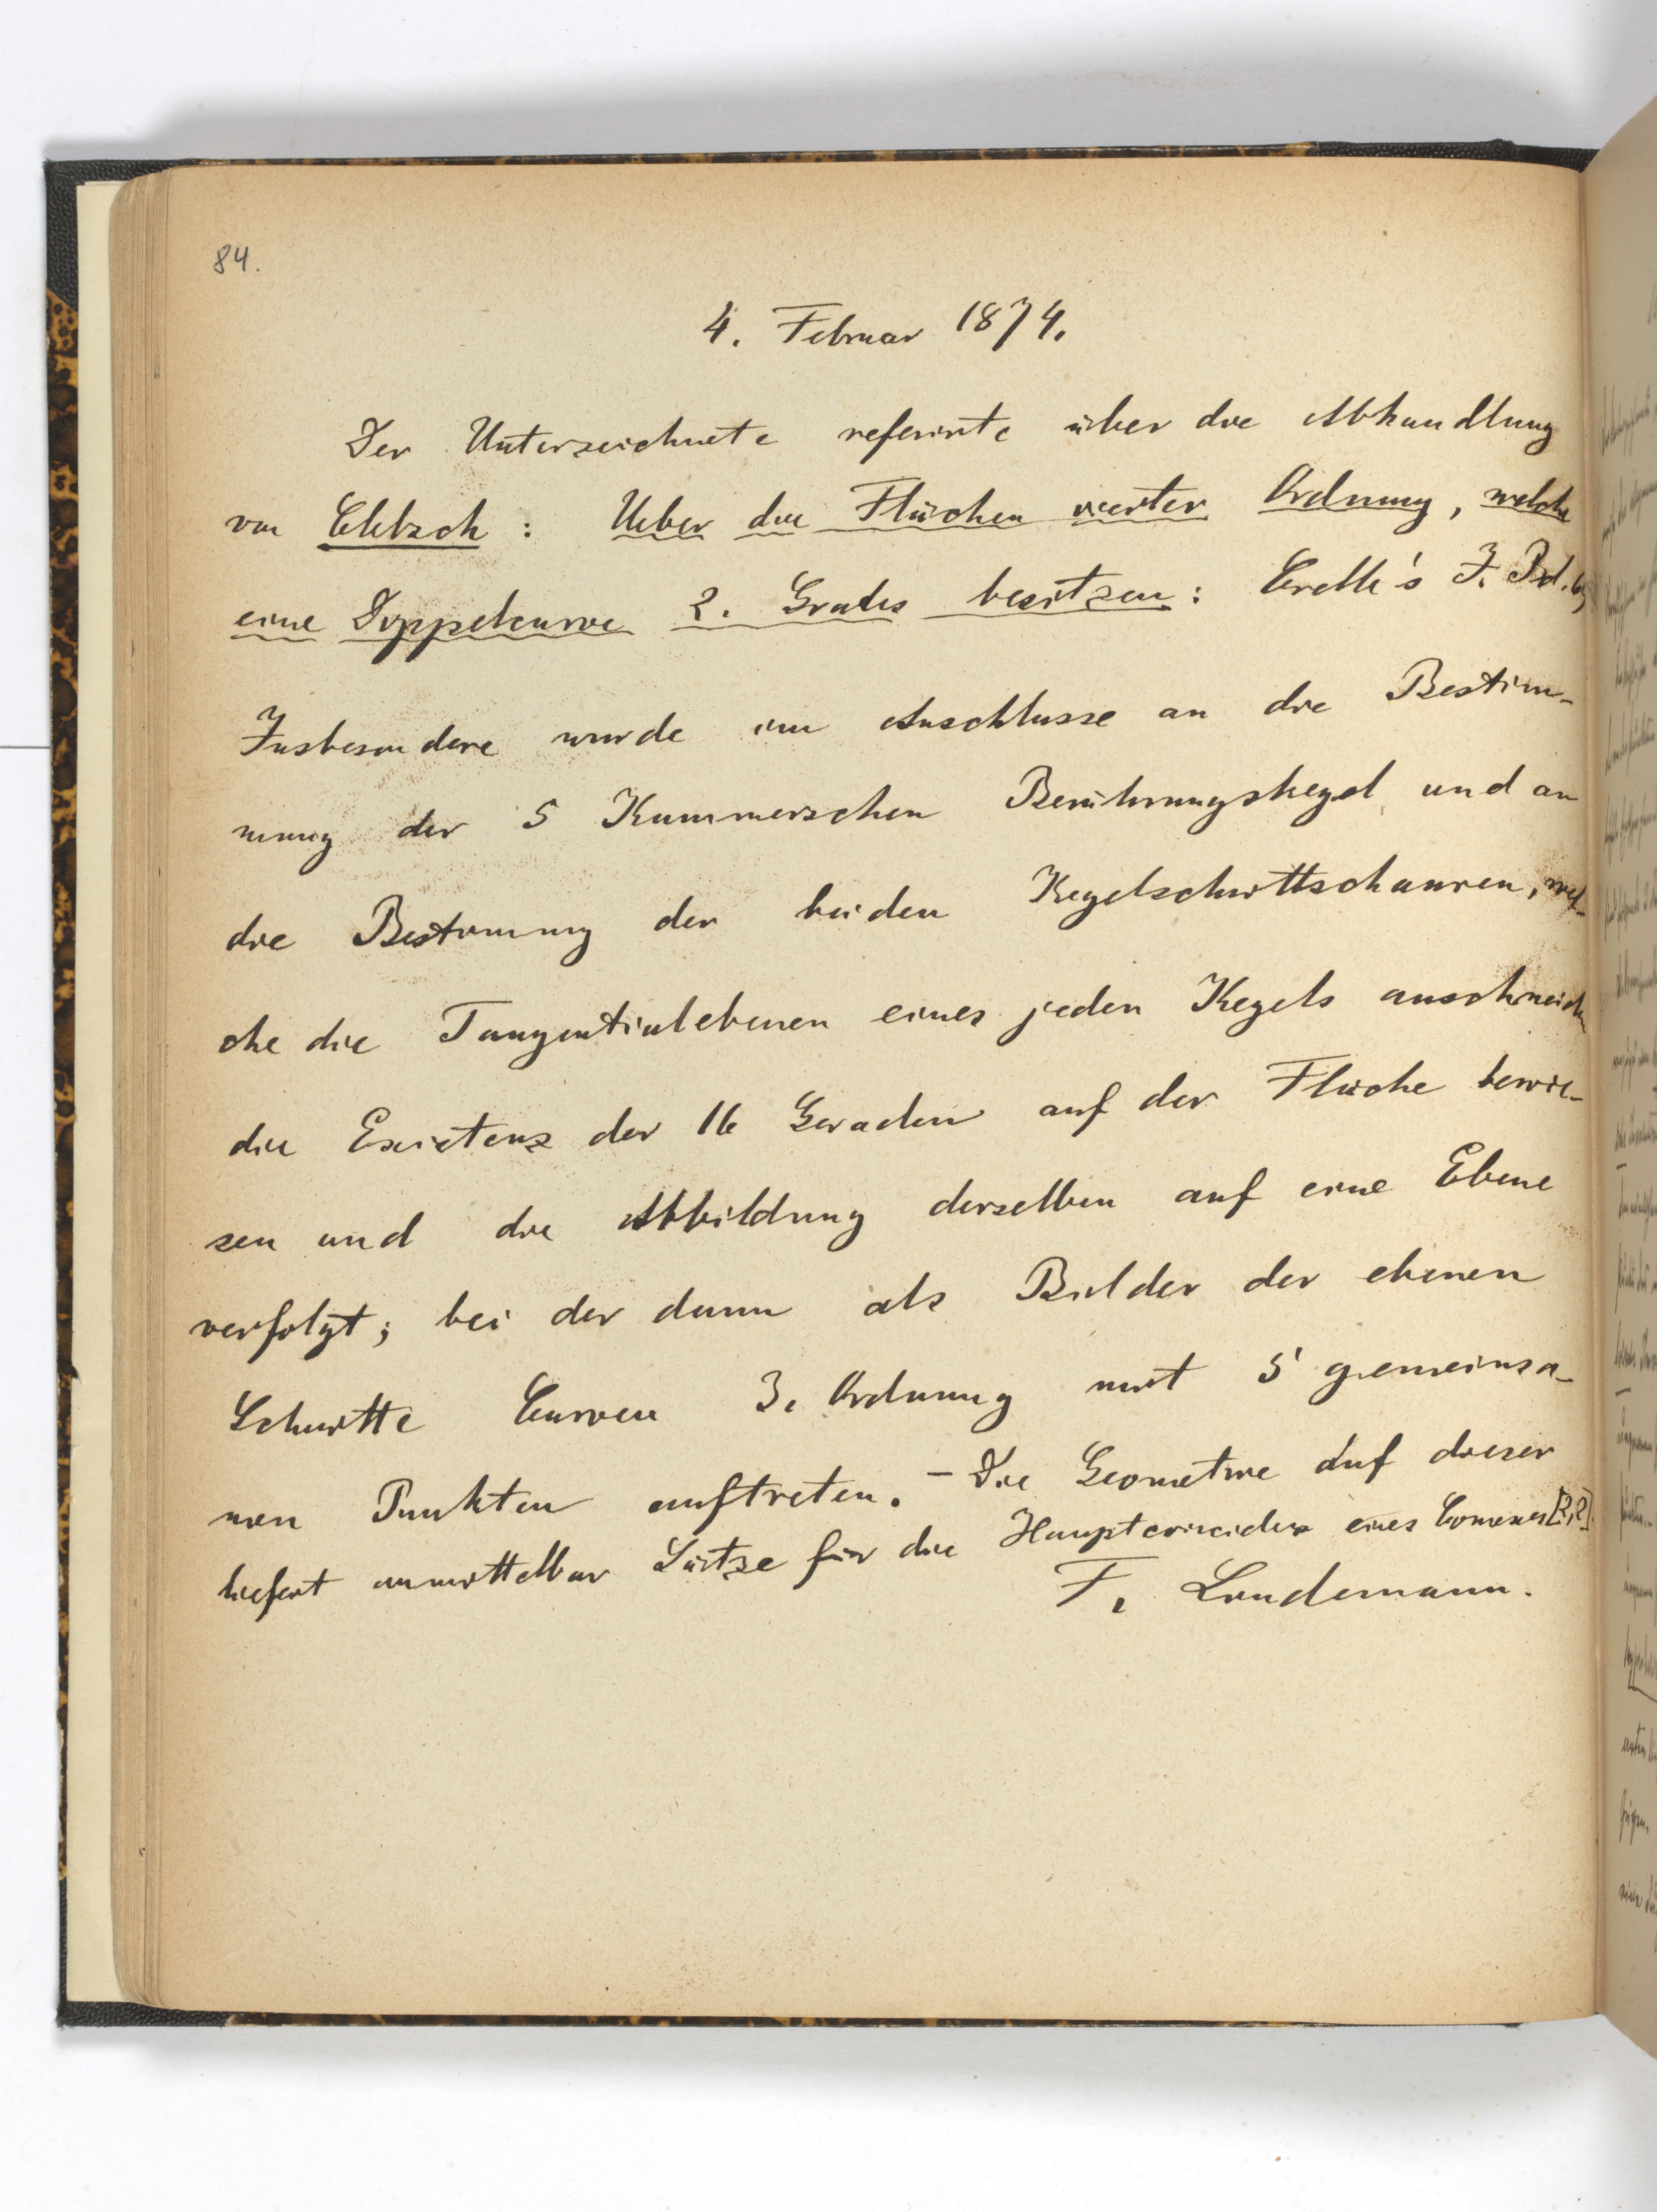 84.
4. Februar 1874.
Der Unterzeichnete referirte über die Abhandlung
von Clebsch: Ueber die Flächen vierter Ordnung, welche
eine Doppelcurve 2. Grades besitzen: Crelle's J. Bd. 69
Insbesondere wurde im Anschlusse an die Bestim-
mung der 5 Kummerschen Berührungskegel und an
die Bestimmung der beiden Kegelschnittschaaren, wel-
che die Tangentialebenen eines jeden Kegels ausschneiden
die Existenz der 16 Geraden auf der Fläche bewie-
sen und die Abbildung derselben auf eine Ebene
verfolgt; bei der dann als Bilder der ebenen
Schnitte Curven 3. Ordnung mit 5 gemeinsa-
men Punkten auftreten. – Die Geometrie auf dieser
liefert unmittelbar Sätze für die Hauptcoincidenz eines Connexes [2,2].
F. Lindemann.